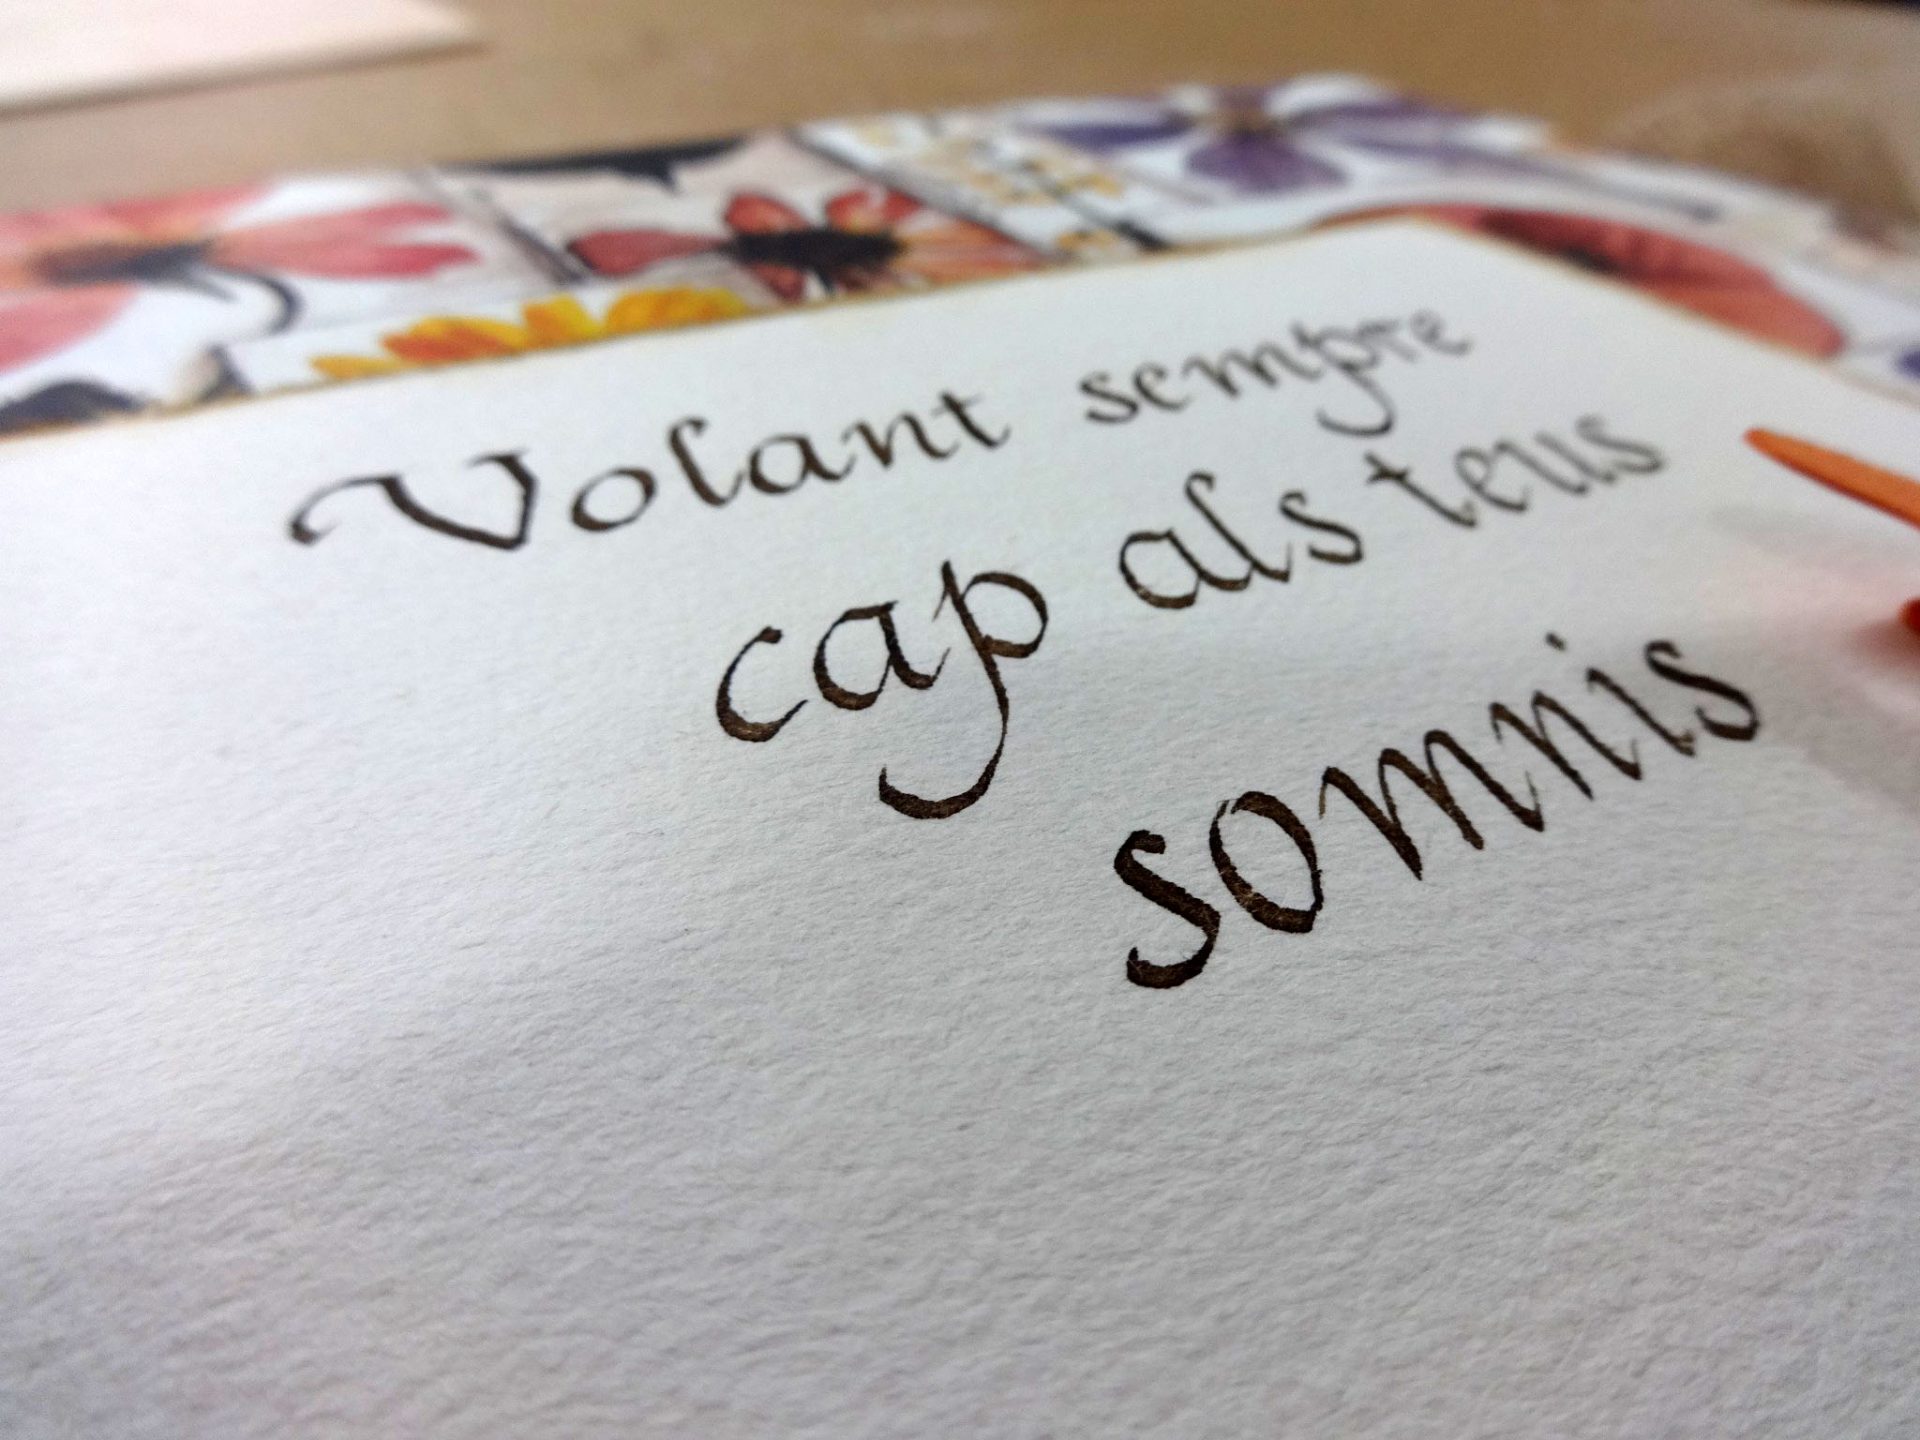 Volant sempre
cap als teus
somnis